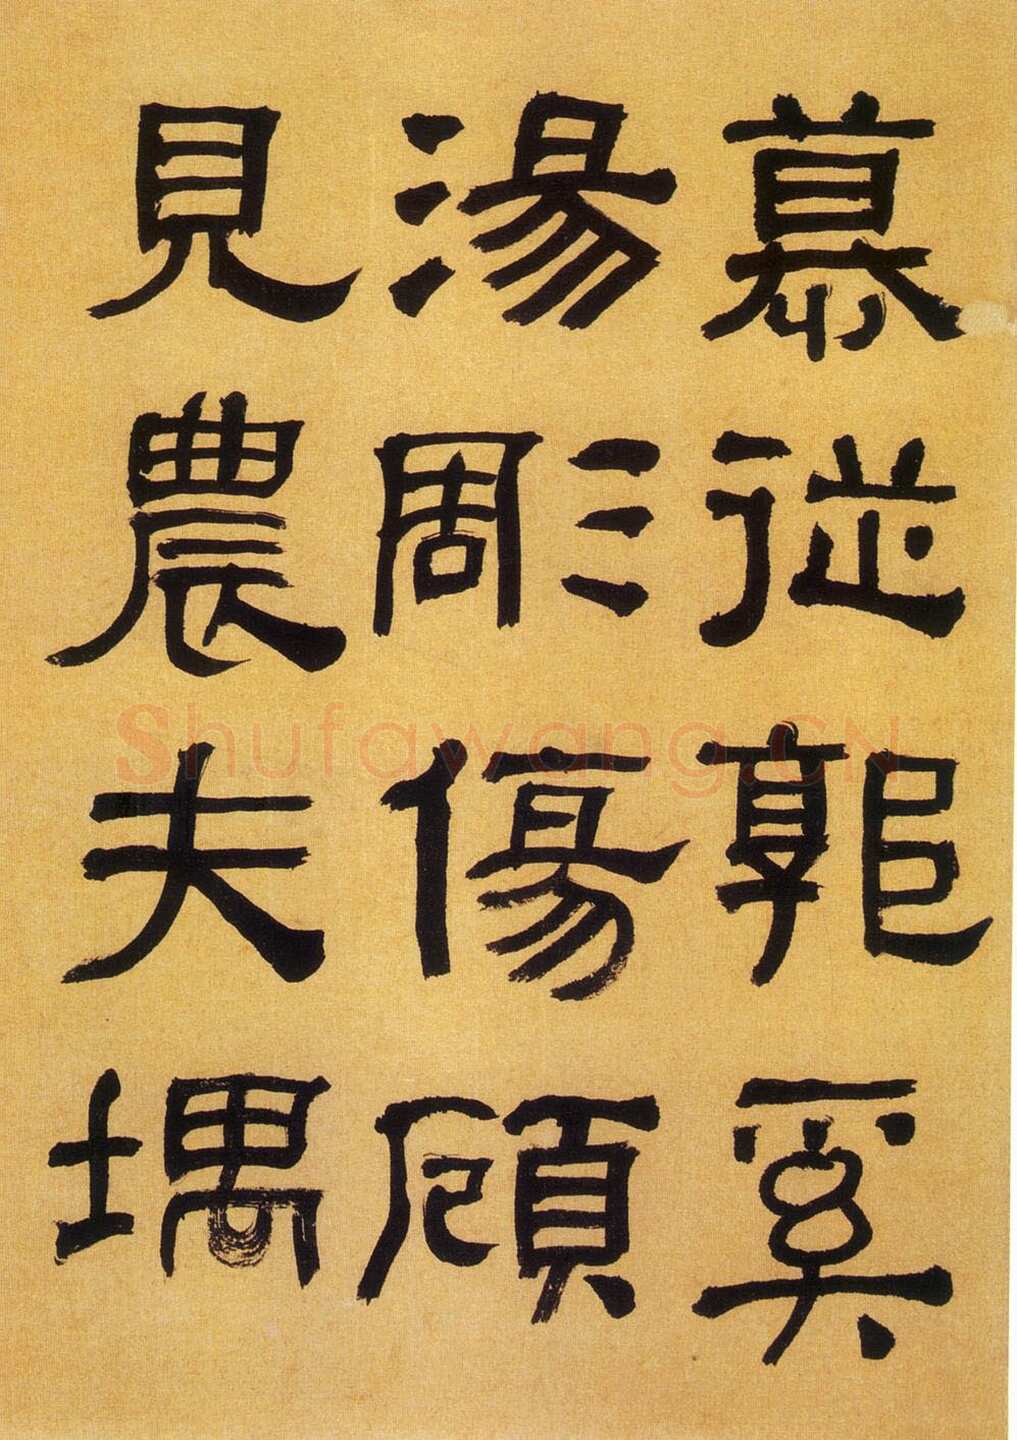 慕從郭奚
湯彫傷頋
見農夫堣
Shufawang.CN